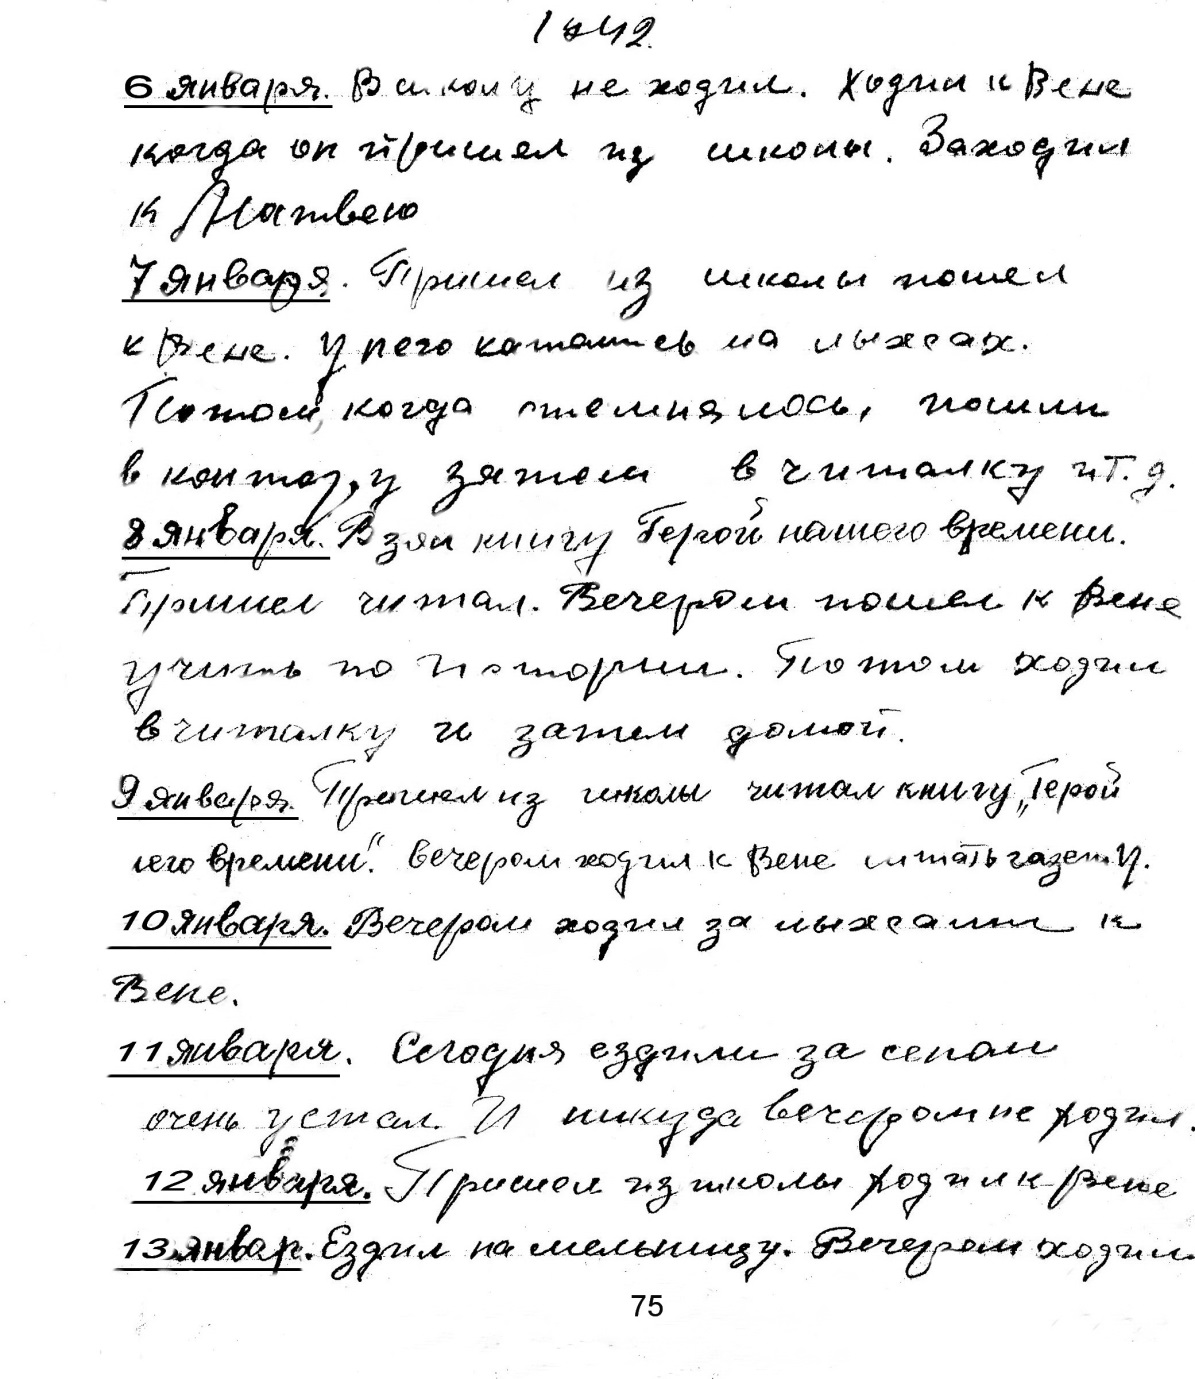 1942.
6 января. В школу не ходил. Ходил к Вене
когда он пришел из школы. Заходил
к Матвею
7 января. Пришел из школы пошел
к Вене. У него катались на лыжах.
Потом, когда стемнялось, пошли
в контору, зятем в читалку и т. д.
8 января. Взял книгу Герой нашего времени.
Пришел читал. Вечером пошел к Вене
учить по Истории. Потом ходил
в читалку и затем домой.
9 января. Пришел из школы читал книгу „Герой
его времени“. вечером ходил к Вене читать газету.
10 января. Вечером ходил за лыжами к
Вене.
11 января. Сегодня ездили за сеном
очень устал. И никуда вечером не ходил.
12 января. Пришел из школы ходил к Вене
13 январ. Ездил на мельницу. Вечером ходил
75